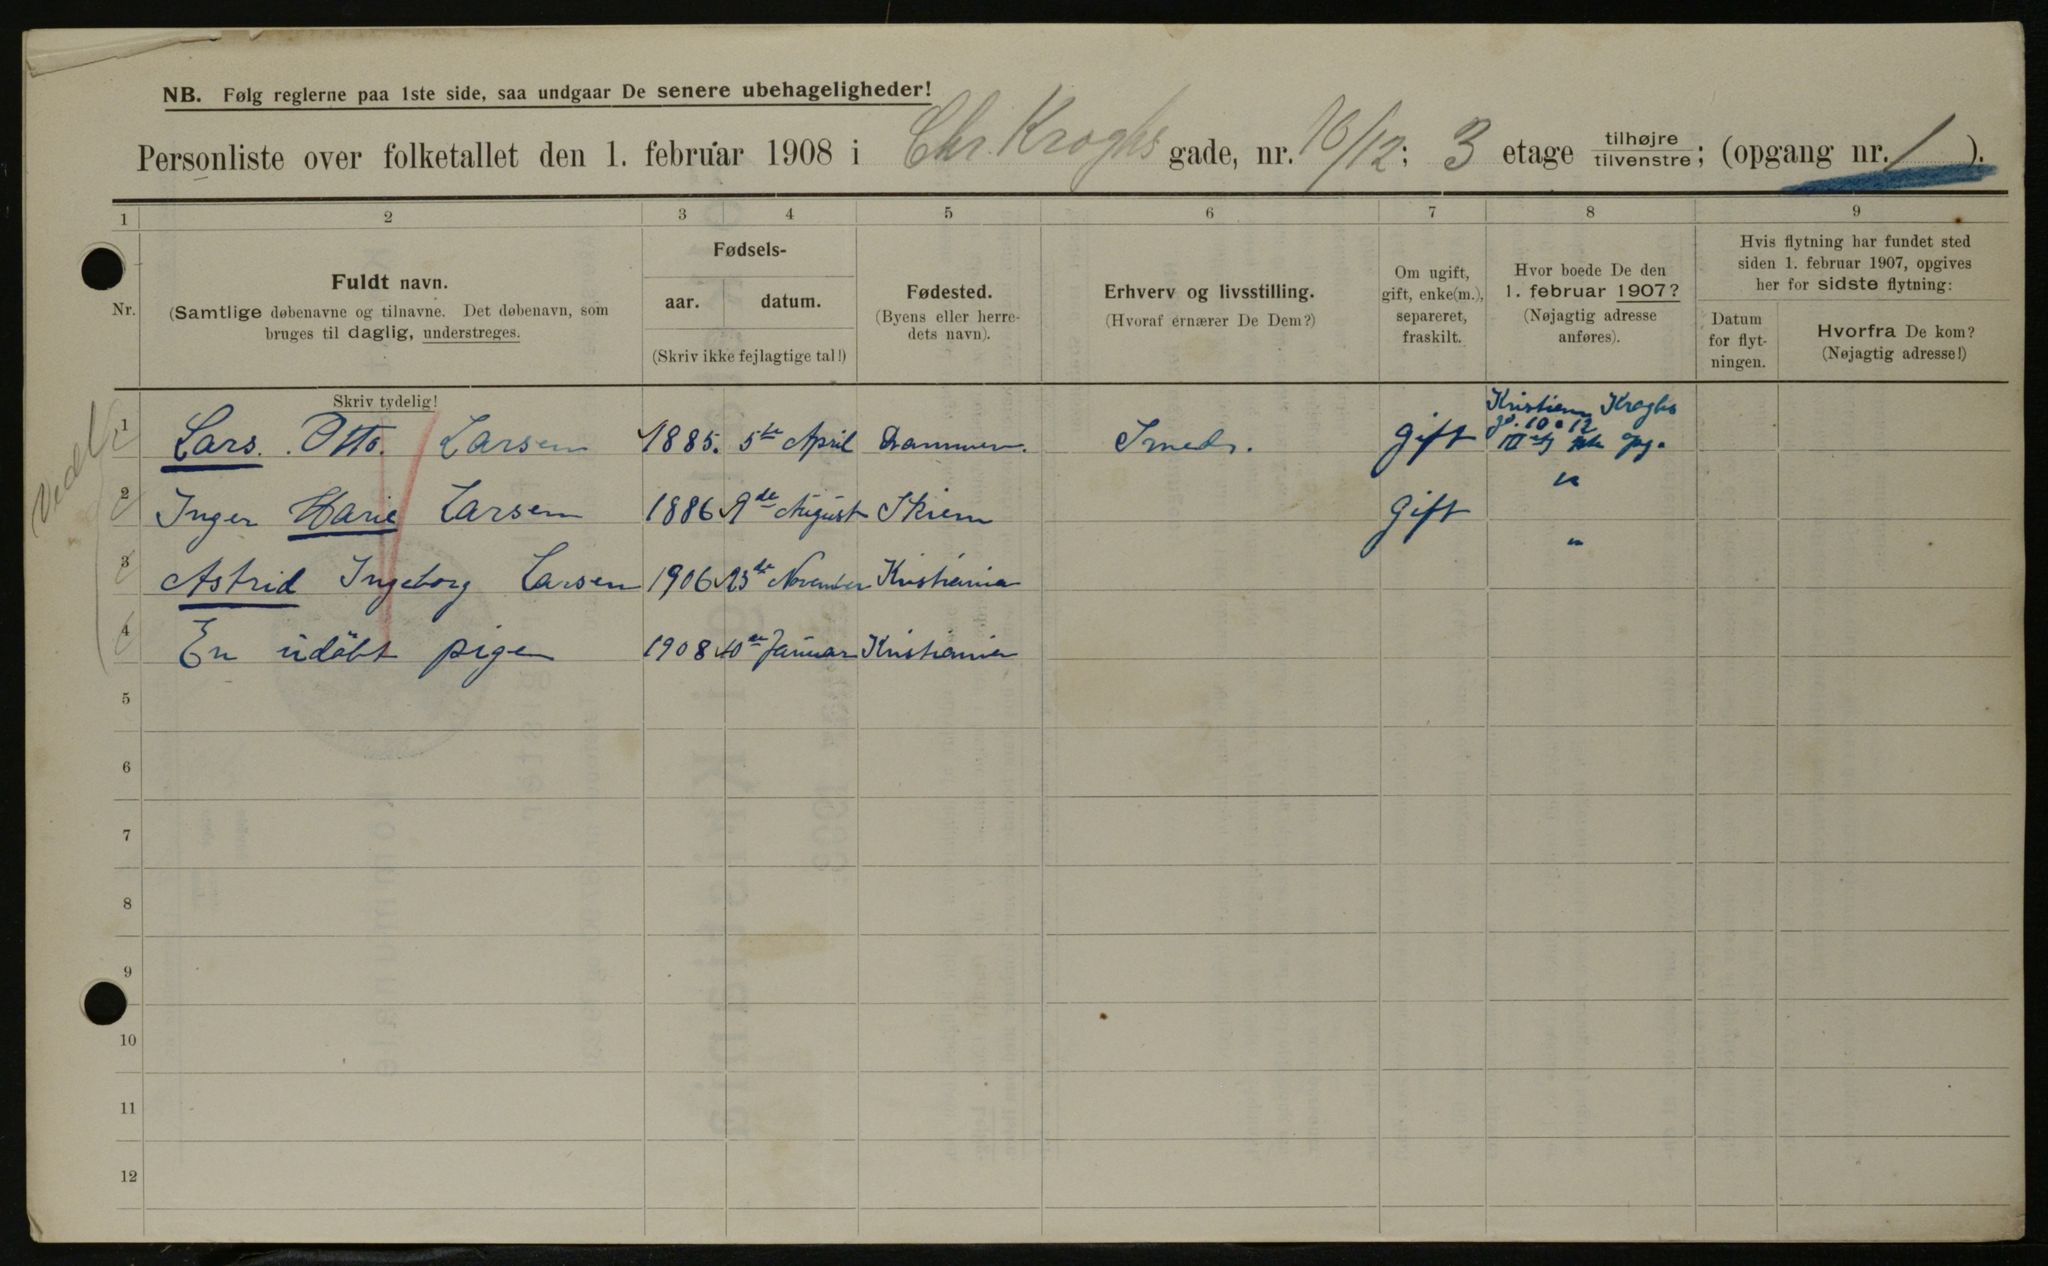 NB. Følg reglerne paa 1ste side, saa undgaar De senere ubehageligheder!
Personliste over folketallet den 1. februar 1908 i Chr. Kroghs gade, nr. 10/12; 3 etage tilhøjre tilvenstre; (opgang nr. 1).
1 2 3 4 5 6 7 8 9
Nr.
Fuldt navn.
(Samtlige døbenavne og tilnavne. Det døbenavn, som
bruges til daglig, understreges.
Fødsels-
aar. datum.
(Skriv ikke fejlagtige tal!)
Fødested.
(Byens eller herre-
dets navn).
Erhverv og livsstilling.
(Hvoraf ernærer De Dem?)
Om ugift,
gift, enke(m.),
separeret,
fraskilt.
Hvor boede De den
1. februar 1907?
(Nøjagtig adresse
anføres).
Hvis flytning har fundet sted
siden 1. februar 1907, opgives
her for sidste flytning:
Datum
for flyt-
ningen.
Hvorfra De kom?
(Nøjagtig adresse!)
Skriv tydelig!
1 Lars. Otto. Larsen 1885. 5te April Drammen. Smed. gift Kristian Kroghs
gd. 10 & 12
III etg
2 Inger Marie Larsen 1886 9de August Skien gift "
3 Astrid Ingeborg Larsen 1906 23de November Kristiania "
4 En udöbt pige 1908 10de Januar Kristiania
5
6
7
8
9
10
11
12